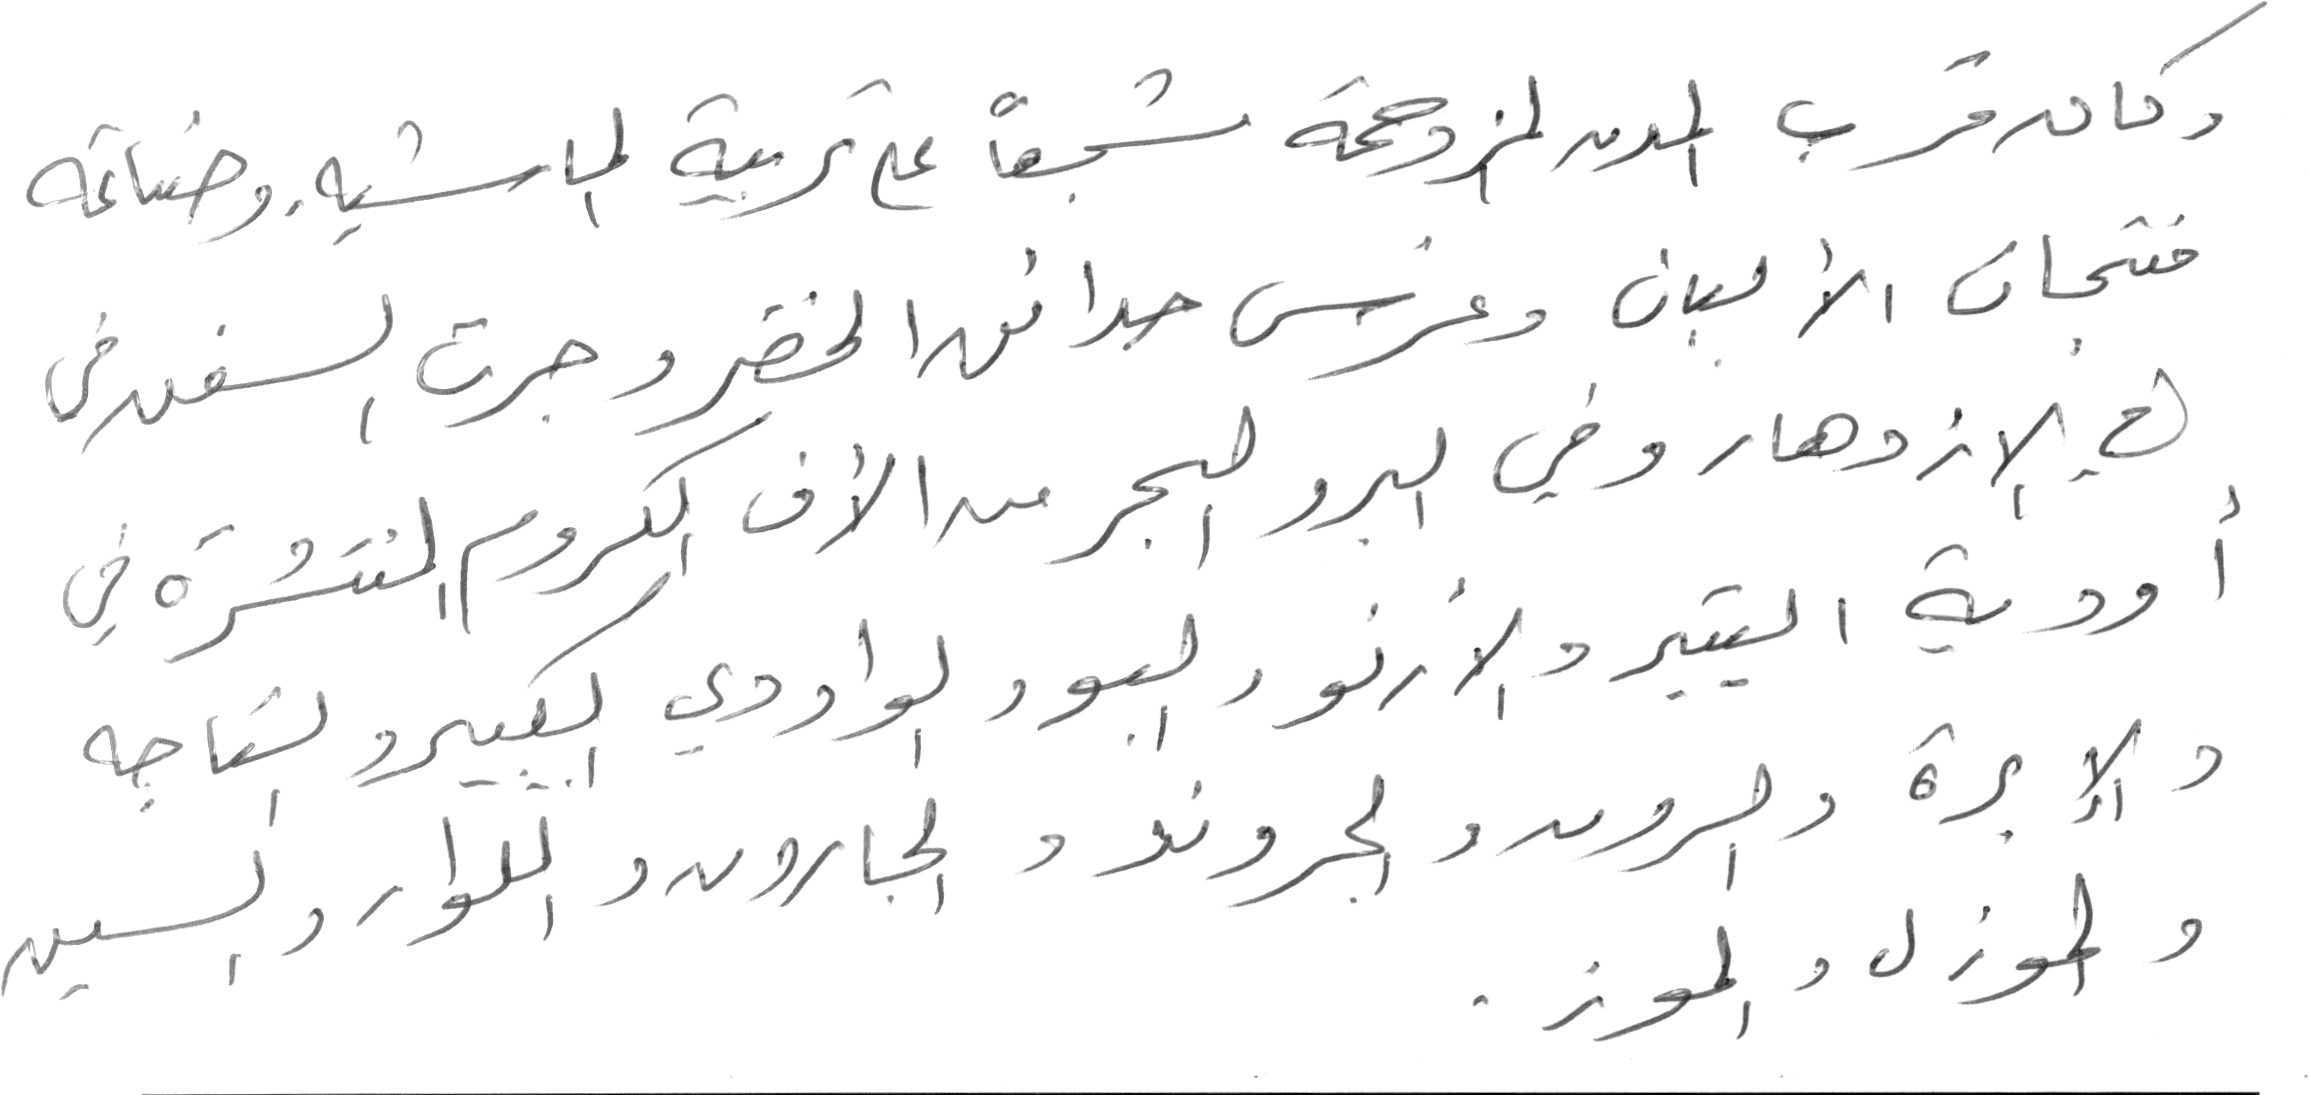 وكان قرب المدن المزدحمة مشجعاً على تربية الماشية، وصناعة
منتجات الألبان وغرس حدائق الخضر وجرت السفن في
الازدهار وفي البر والبحر من الآف الكروم المنتشرة في
أودية التيبر والأرنو والبو والوادي الكبير والتاجه
والإبرة والرون والجروند والجارون واللوار والسين
والموزل والموز.